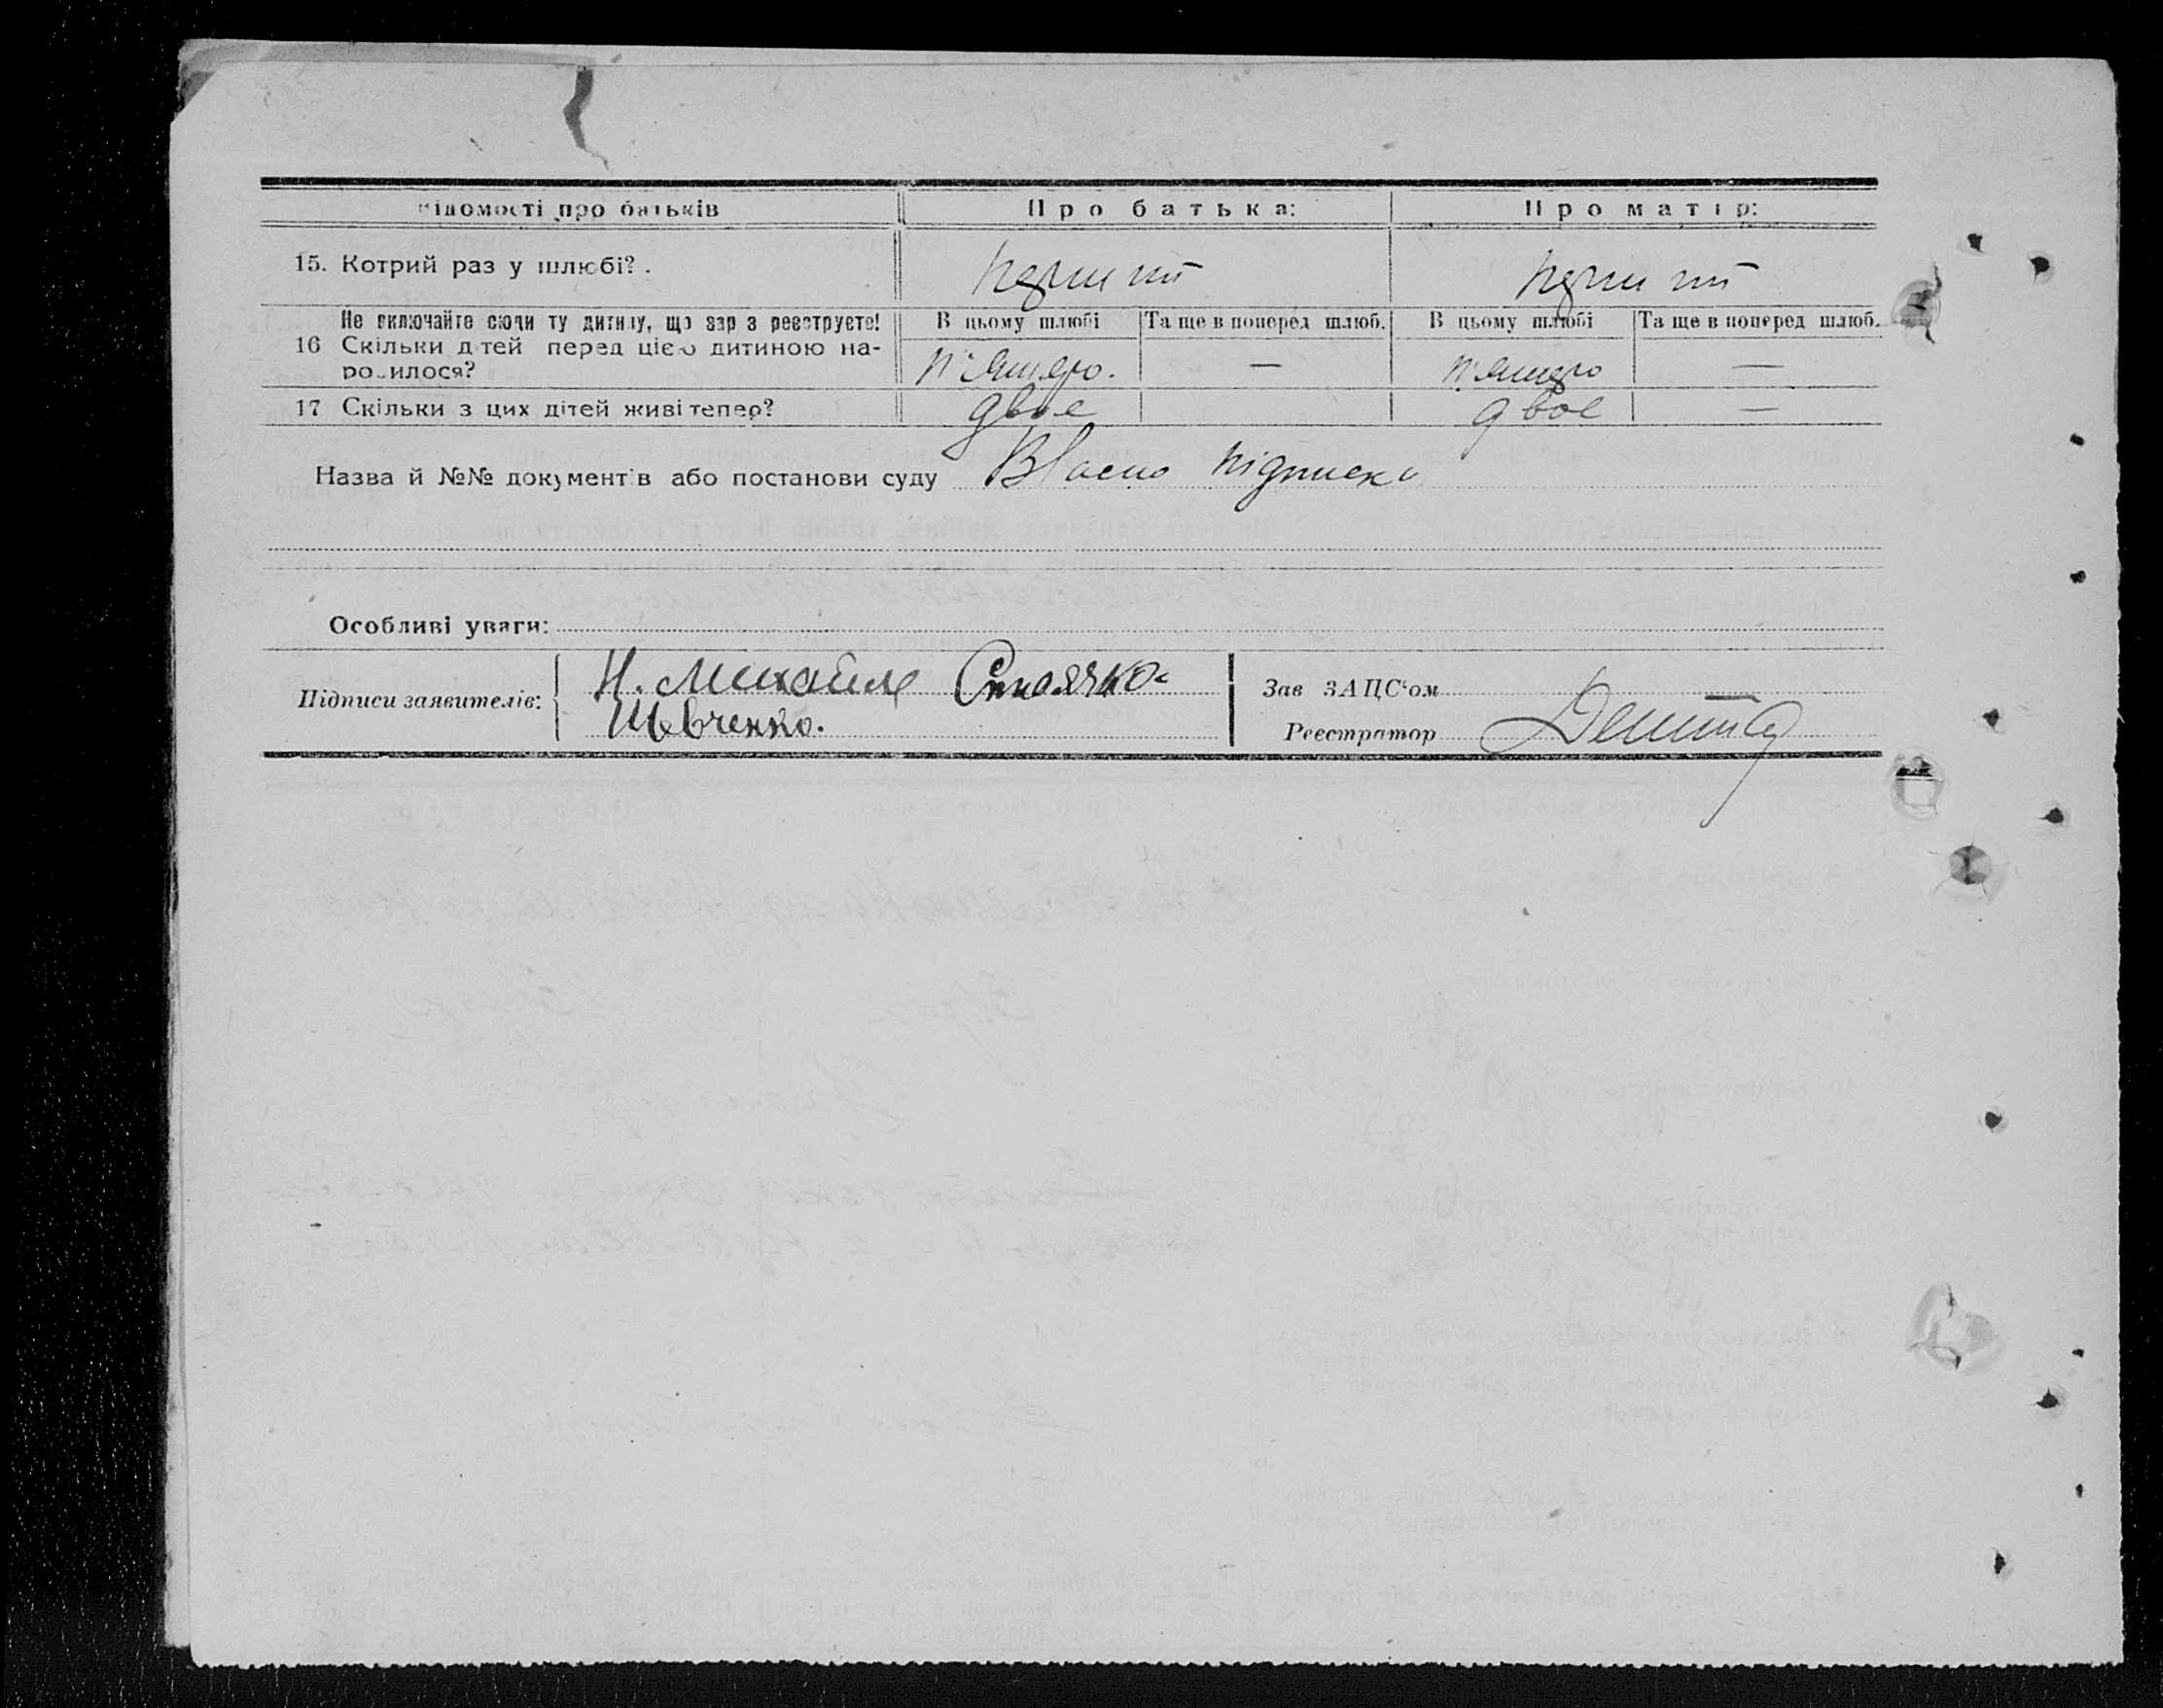 відомості про батьків Про батька: Про матір:
15. Котрий раз у шлюбі? . перший перший
Не включайте сюди ту дитину, що зар з реєструєте! В цьому шлюбі Та ще в поперед шлюб. В цьому шлюбі Та ще в поперед шлюб.
16 Скільки дтей перед цією дитиною на-
родилося? п'ятеро. — п'ятеро —
17 Скільки з цих дітей живі тепер? двоє двоє —
Назва й №№ документів або постанови суду Власно підписка
Особливі уваги:
Підписи заявителів: Н. Михайло
Шевченко.
Зав ЗАЦС'ом —
Реєстратор